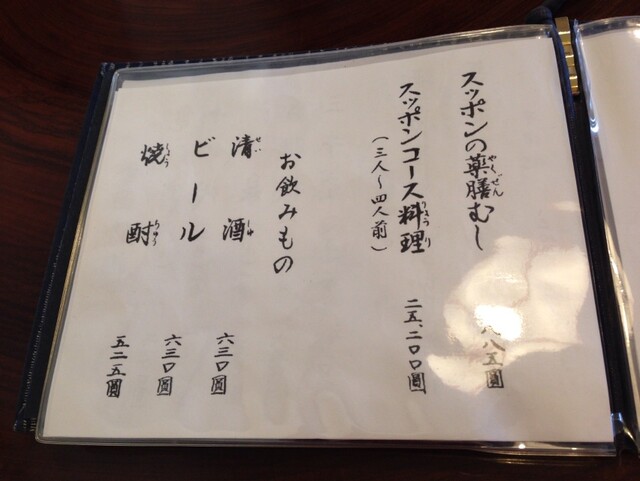 スッポンの薬膳むし
やくぜん
八八五圓
スッポンコース料理
りょうり
(三人〜四人前)
二五、二〇〇圓
お飲みもの
清酒
せいしゅ
六三〇圓
ビール
六三〇圓
焼酎
しょうちゅう
五二五圓